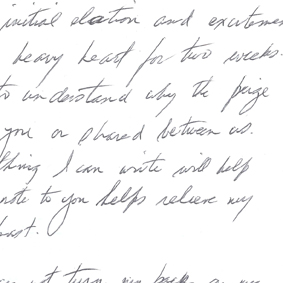 initial elation and excitement
heavy heart for two weeks.
to understand why the prize
you or shared between us.
thing I can write will help
note to you helps relieve my
heart.
not turn my back on my